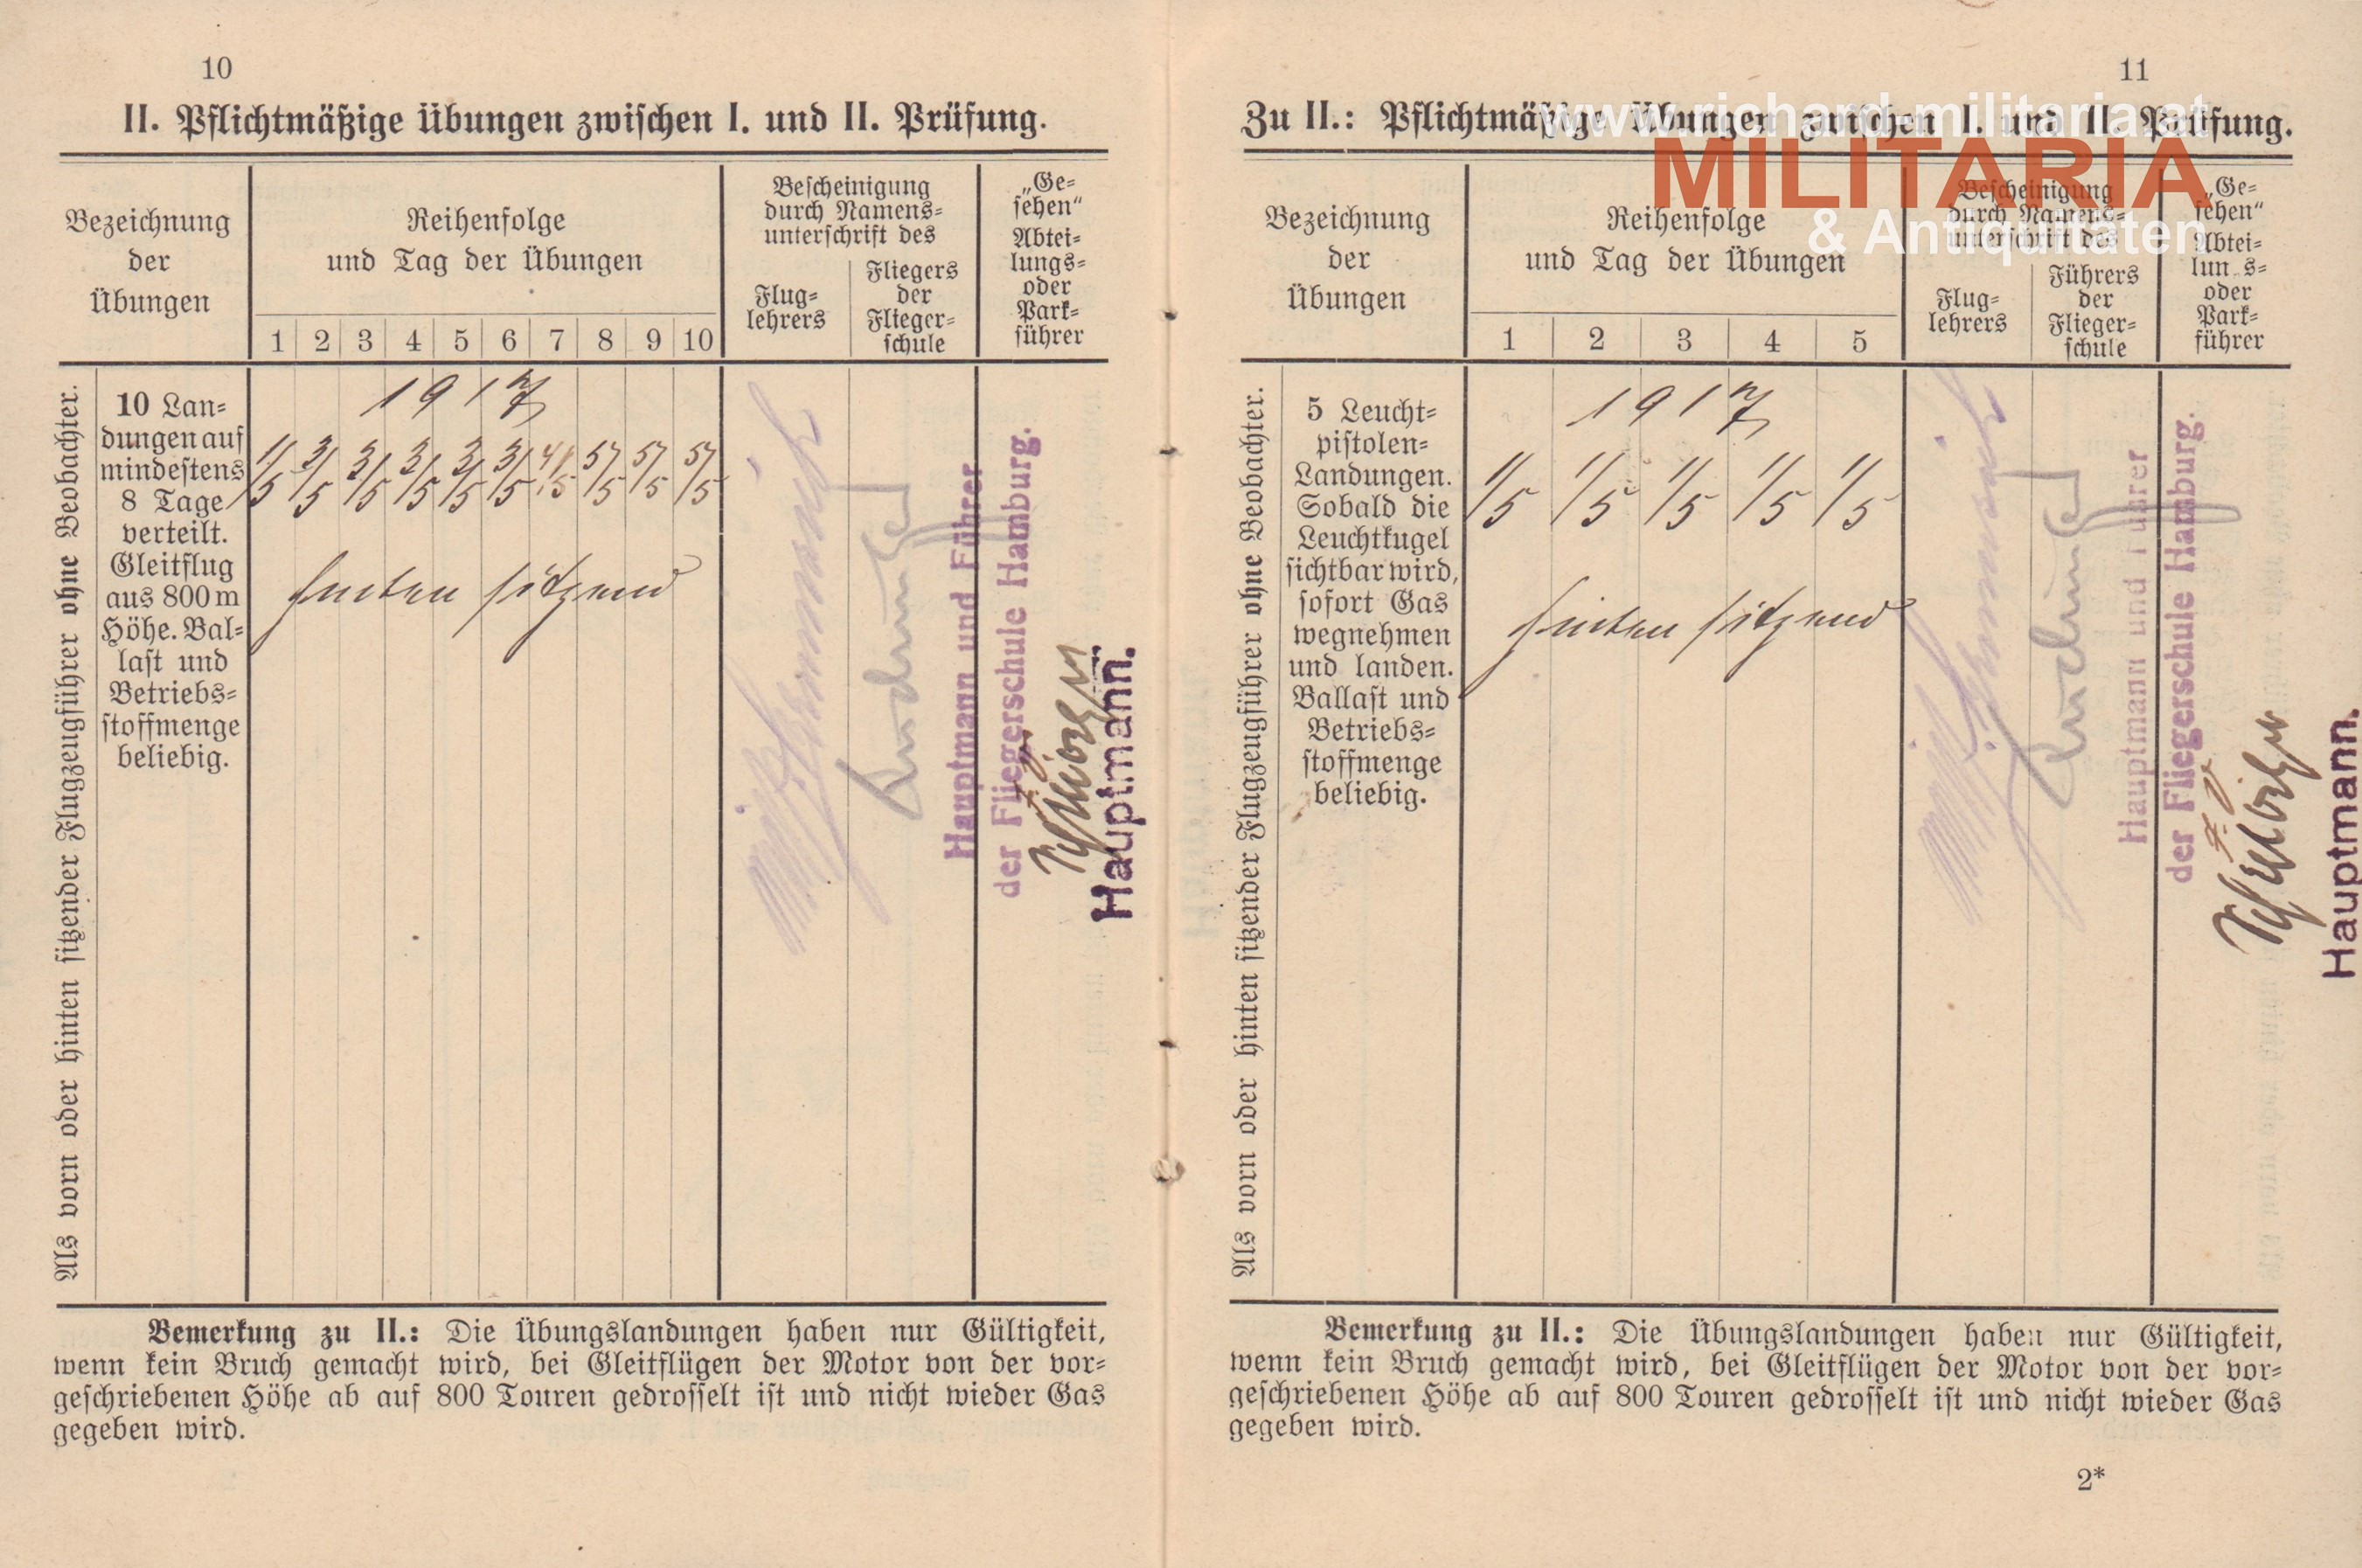 10
II. Pflichtmäßige Übungen zwischen I. und II. Prüfung.
Bezeichnung
der
Übungen
Reihenfolge
und Tag der Übungen
1 2 3 4 5 6 7 8 9 10
Bescheinigung
durch Namens-
unterschrift des
Flug-
lehrers
Fliegers
der
Flieger-
schule
„Ge-
sehen“
Abtei-
lungs-
oder
Park-
führer
Als vorn oder hinten sitzender Flugzeugführer ohne Beobachter.
10 Lan-
dungen auf
mindestens
8 Tage
verteilt.
Gleitflug
aus 800 m
Höhe. Bal-
last und
Betriebs-
stoffmenge
beliebig.
1917
1/5 2/5 3/5 3/5 3/5 3/5 4/5 5/5 5/5 5/5
hinten sitzend
Hauptmann und Führer
der Fliegerschule Hamburg.
Hauptmann.
Bemerkung zu II.: Die Übungslandungen haben nur Gültigkeit,
wenn kein Bruch gemacht wird, bei Gleitflügen der Motor von der vor-
geschriebenen Höhe ab auf 800 Touren gedrosselt ist und nicht wieder Gas
gegeben wird.
11
Zu II.: Pflichtmäßige Übungen zwischen I. und II. Prüfung.
www.richard-militaria.at
MILITARIA
& Antiquitäten
Bezeichnung
der
Übungen
Reihenfolge
und Tag der Übungen
1 2 3 4 5
Bescheinigung
durch Namens-
unterschrift des
Flug-
lehrers
Führers
der
Flieger-
schule
„Ge-
sehen“
Abtei-
lungs-
oder
Park-
führer
Als vorn oder hinten sitzender Flugzeugführer ohne Beobachter.
5 Leucht-
pistolen-
Landungen.
Sobald die
Leuchtkugel
sichtbar wird,
sofort Gas
wegnehmen
und landen.
Ballast und
Betriebs-
stoffmenge
beliebig.
1917
1/5 1/5 1/5 1/5 1/5
hinten sitzend
Hauptmann und Führer
der Fliegerschule Hamburg.
Hauptmann.
Bemerkung zu II.: Die Übungslandungen haben nur Gültigkeit,
wenn kein Bruch gemacht wird, bei Gleitflügen der Motor von der vor-
geschriebenen Höhe ab auf 800 Touren gedrosselt ist und nicht wieder Gas
gegeben wird.
2*